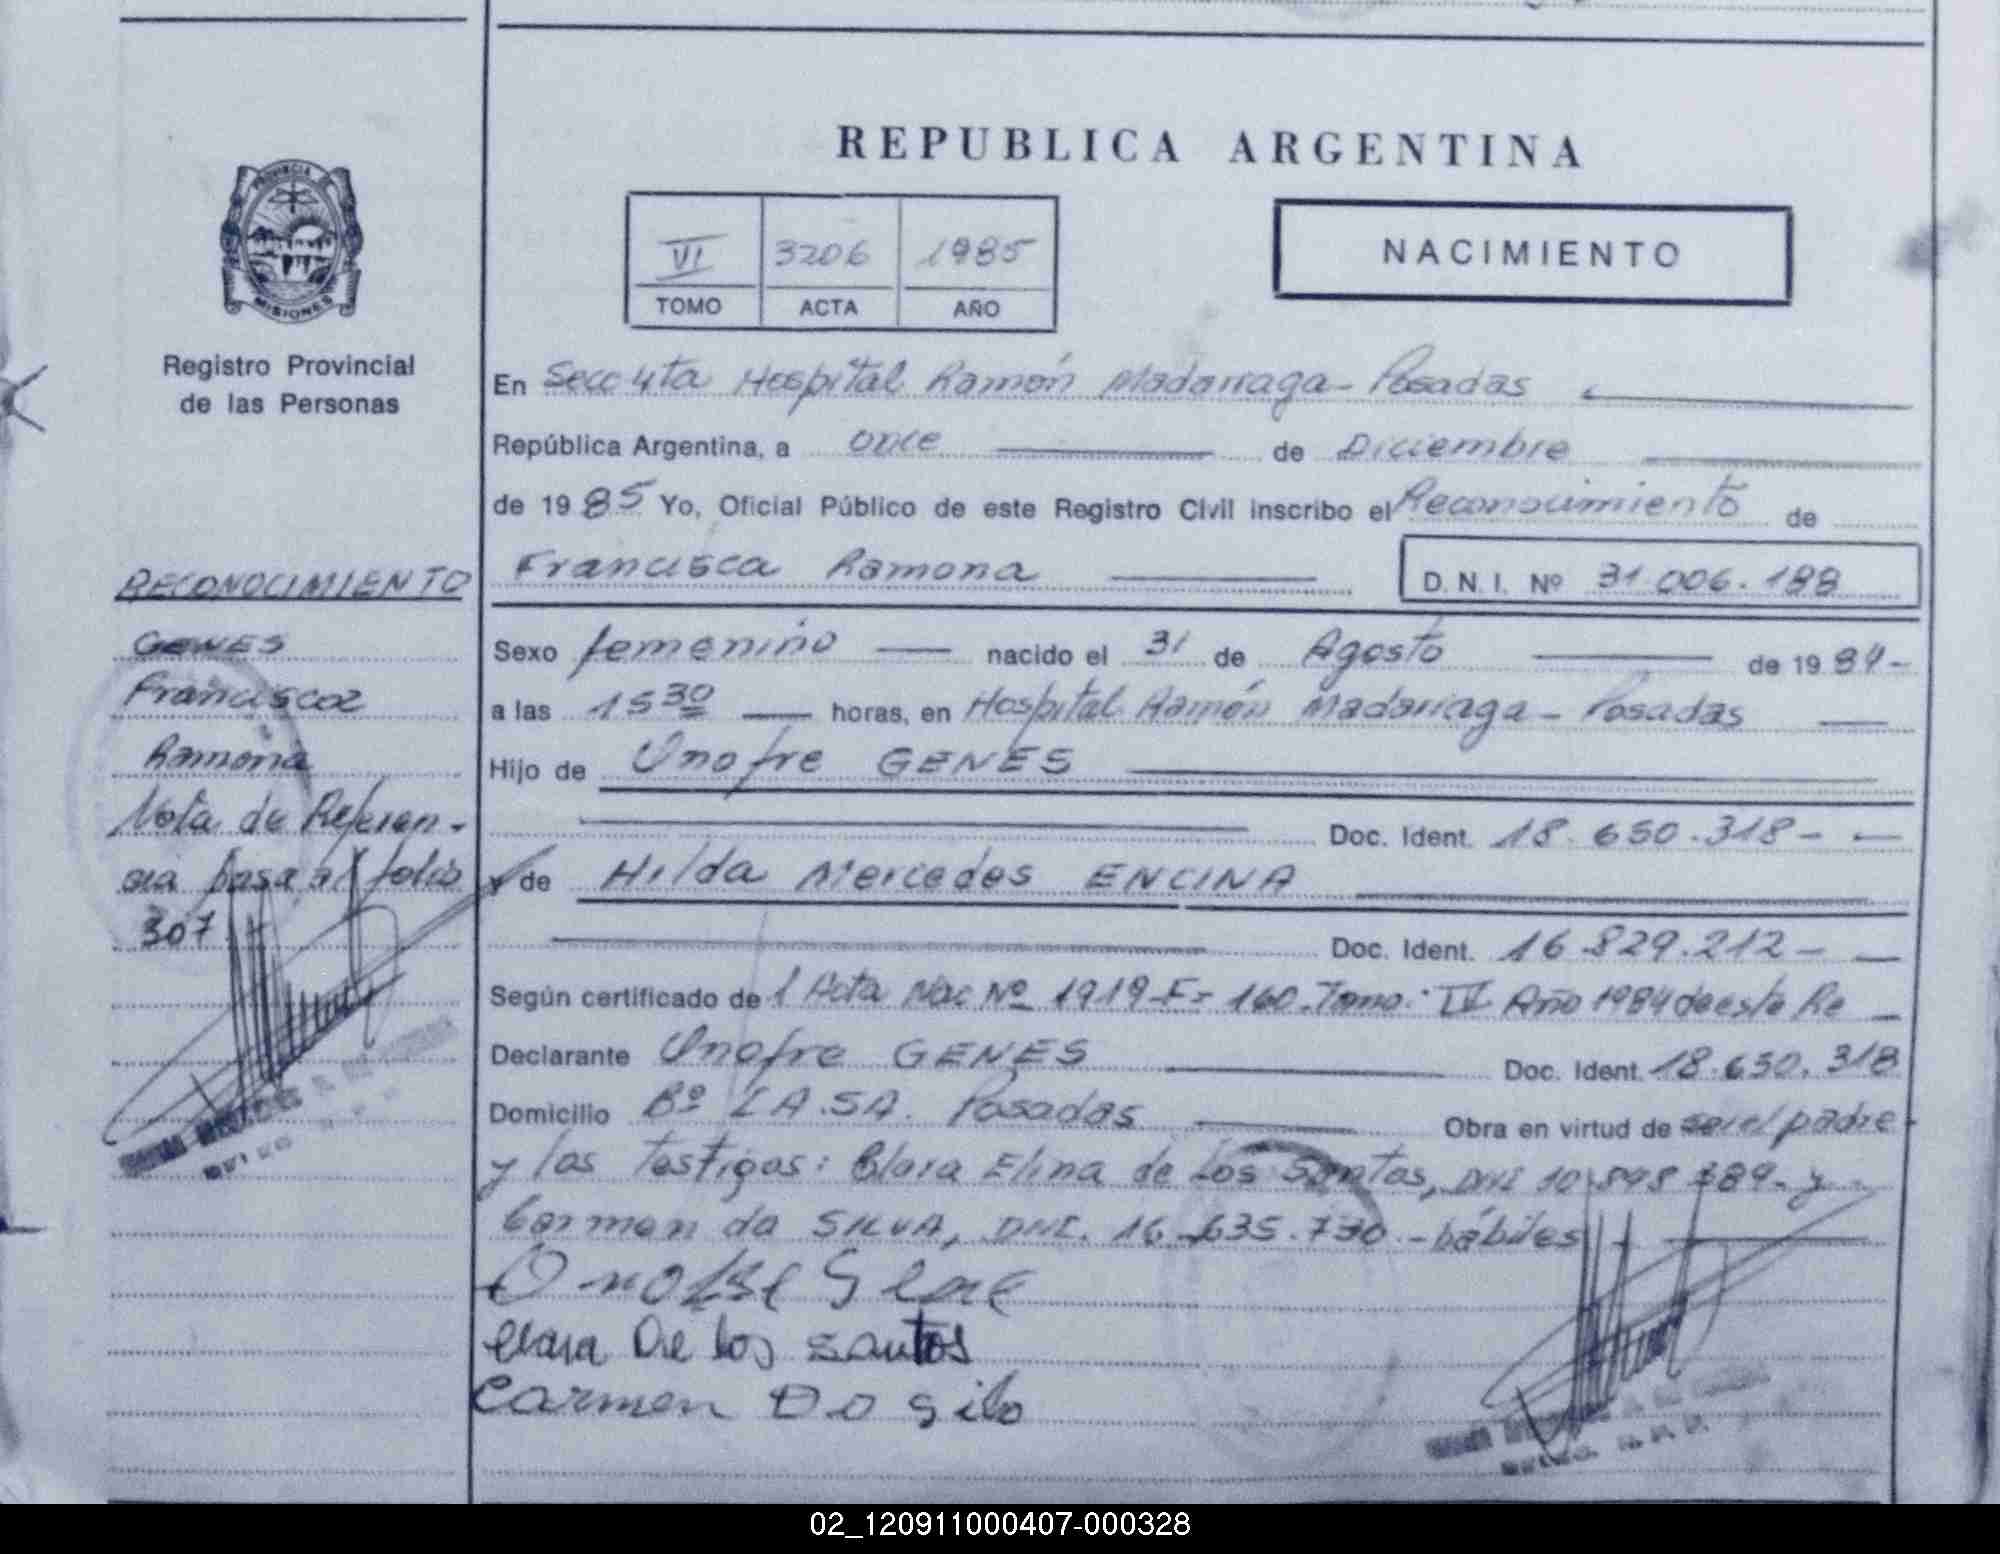 REPUBLICA ARGENTINA
PROVINCIA DE
MISIONES
Registro Provincial
de las Personas
VI 3206 1985
TOMO ACTA AÑO
NACIMIENTO
En Secc 4ta Hospital Ramón Madariaga - Posadas
República Argentina, a once de Diciembre
de 1985 Yo, Oficial Público de este Registro Civil inscribo el Reconocimiento de
Francisca Ramona D. N. I. Nº 31.006.188
RECONOCIMIENTO
GENES
Francisca
Ramona
Nota de Referen-
cia pasa al folio
307
Sexo femenino nacido el 31 de Agosto de 1984-
a las 15 30 horas, en Hospital Ramón Madariaga - Posadas
Hijo de Onofre GENES
Doc. Ident. 18.630.318-
y de Hilda Mercedes ENCINA
Doc. Ident. 16.829.212-
Según certificado de 1 Acta Nac Nº 1919-F= 160. Tomo: IV Año 1984 de este Re
Declarante Onofre GENES Doc. Ident. 18.630.318
Domicilio Bº I.A.SA. Posadas Obra en virtud de ser el padre
y los testigos: Clara Elina de Los Santos, DNI 10.898.389- y
Carmen da SILVA, DNI. 16.635.730 - hábiles
Onofre Gene
Clara De los santos
Carmen Do silo
02_120911000407-000328